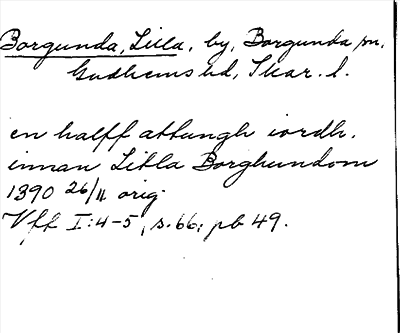 Borgunda, Lilla, by, Borgunda sn,
Gudhems hd, Skar. l.
en halff attungh iordh.
innan Litla Borghundom
1390 26/11 orig.
Vff I:4-5, s. 66; pb 49.